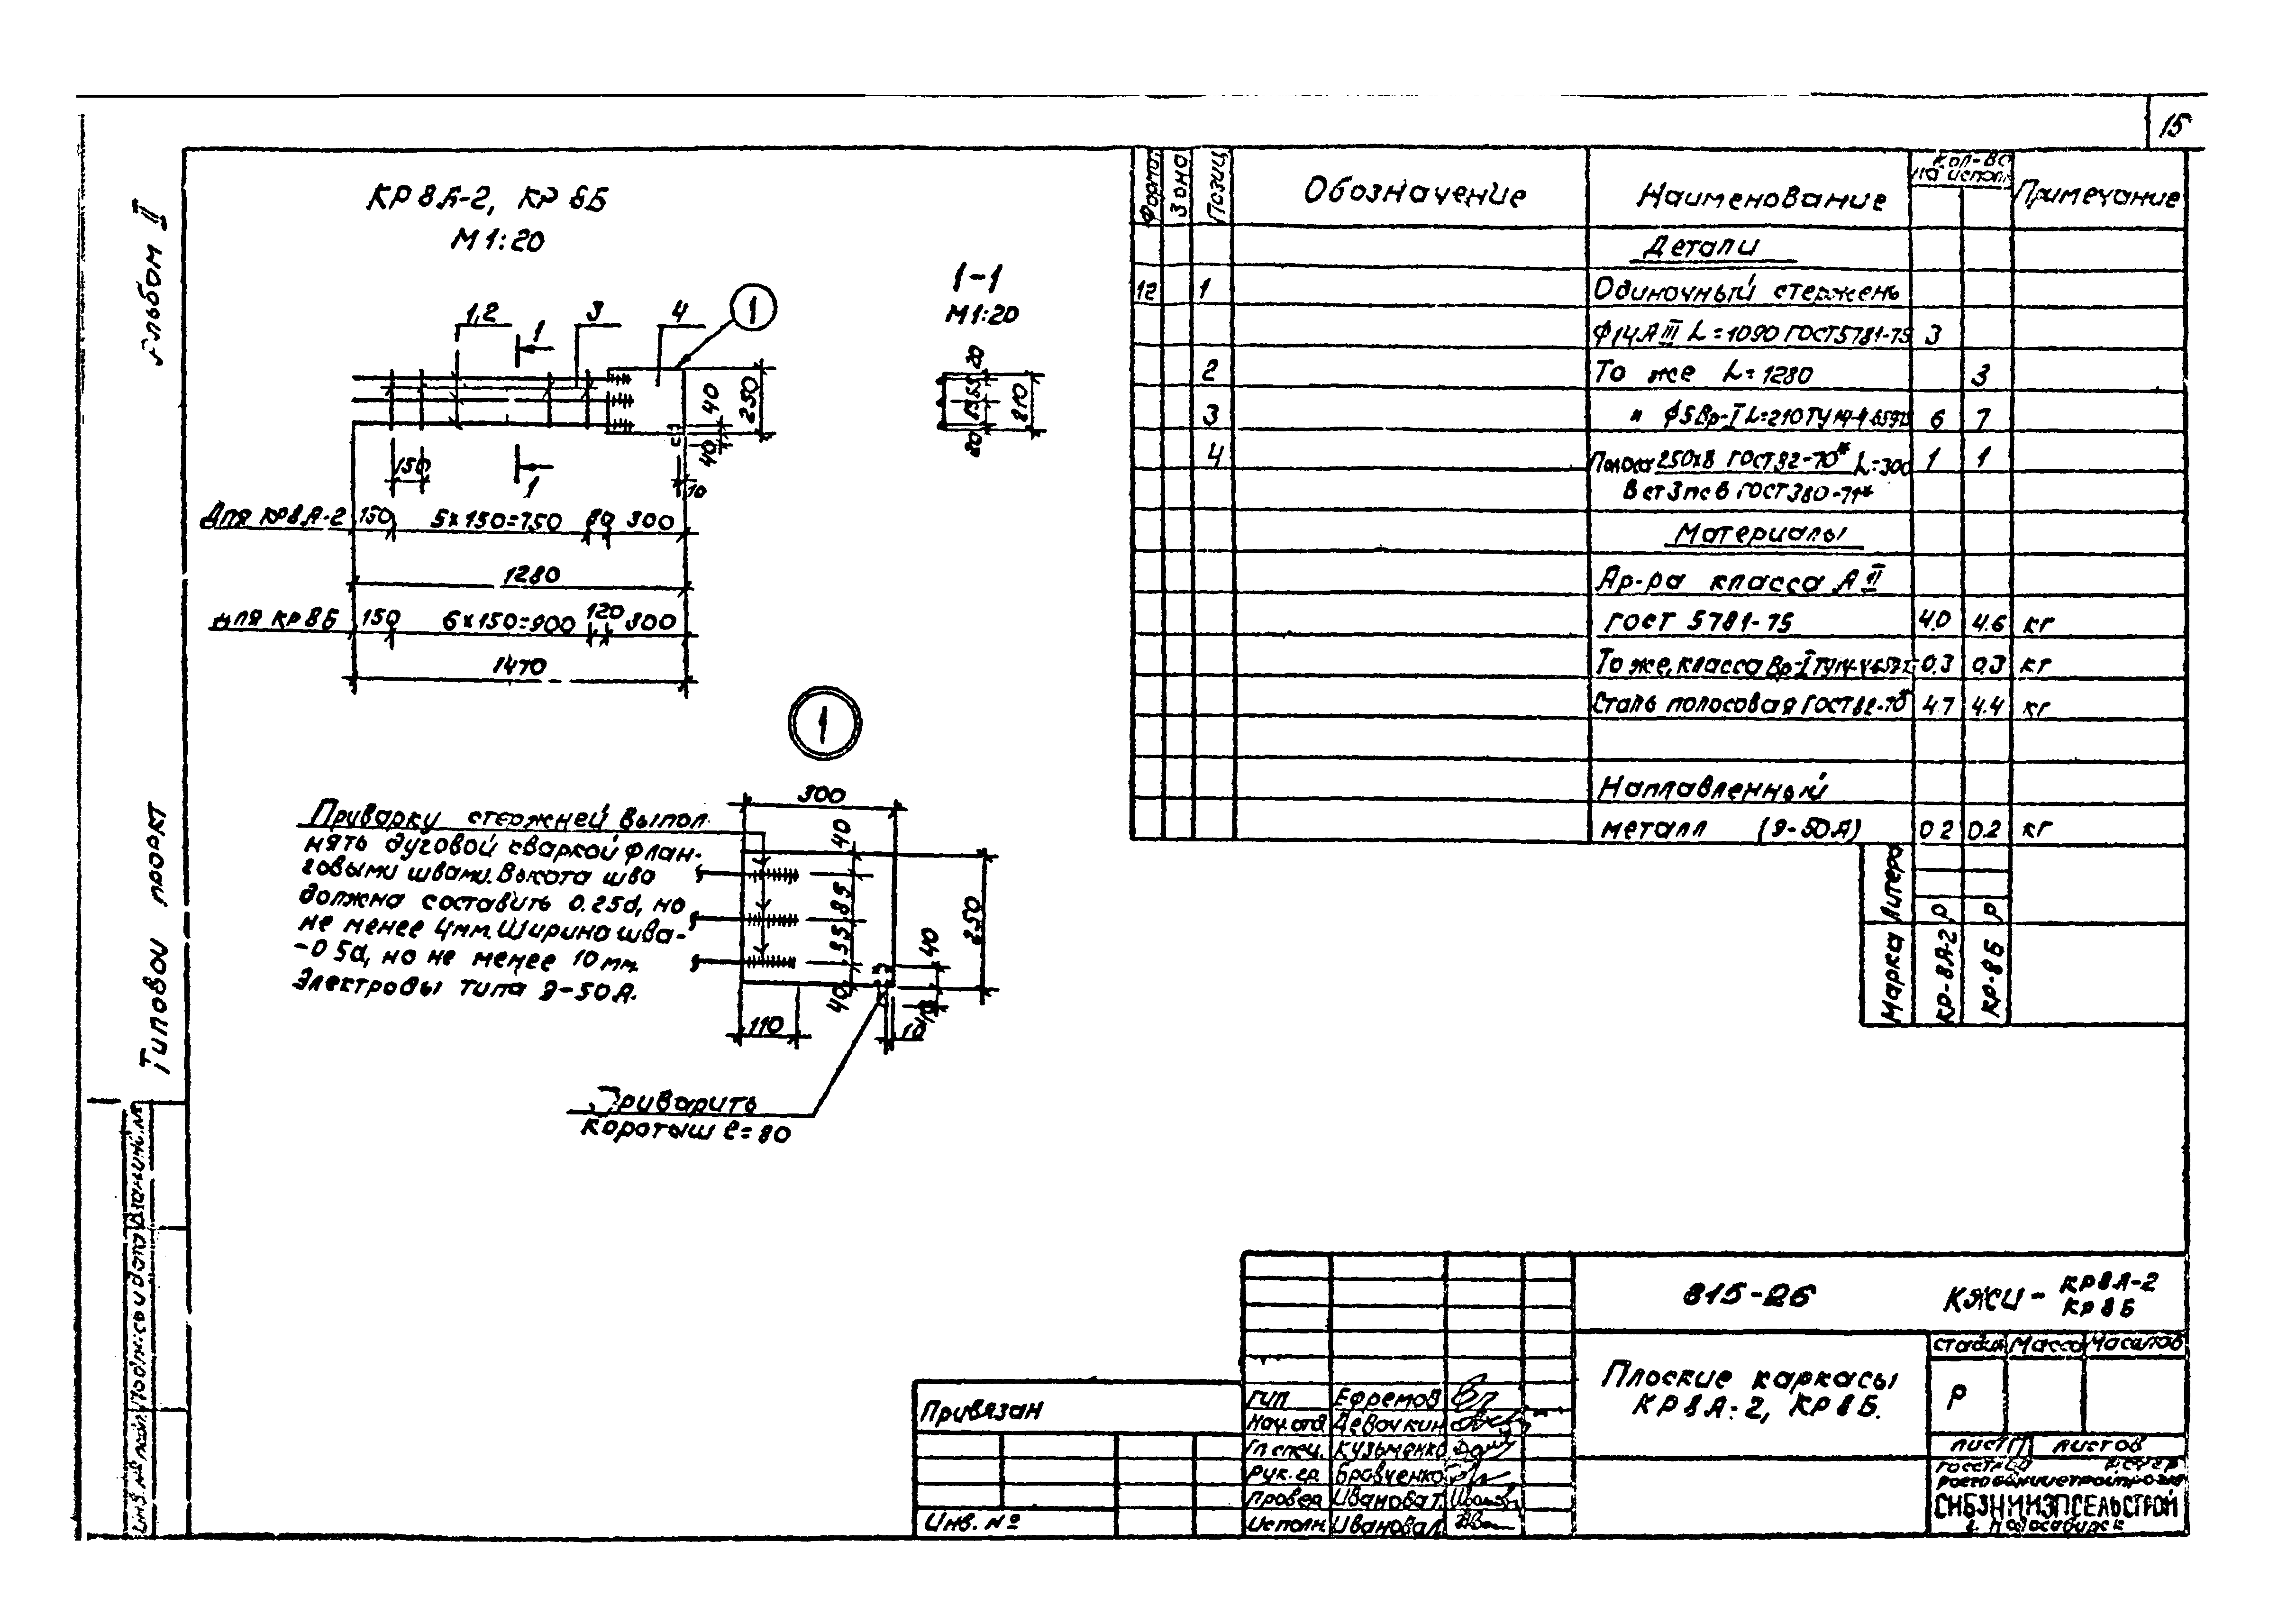 15
Альбом II
Типовой проект
КР8А-2, КР8Б
М1:20
1,2
1
3
4
1
1-1
М1:20
250
40
40
10
150
1
20
210
20
Для КР8А-2 150 5х150=750 80 300
1280
Для КР8Б 150 6х150=900 120 300
1470
1
300
Приварку стержней выпол-
нять дуговой сваркой флан-
говыми швами. Высота шва
должна составить 0.25d, но
не менее 4мм. Ширина шва-
-0.5d, но не менее 10мм.
Электроды типа Э-50А.
40
85
40
250
40
110
10
Приварить
коротыш ℓ=80
Формат Зона Позиц. Обозначение Наименование Кол-во на исполн. Примечание
Детали
12 1 Одиночный стержень
ф14АIII L=1090 ГОСТ5781-75 3
2 То же L=1280 3
3 " ф5Вр-I L=210ТУ 6 7
4 Полоса 250х8 ГОСТ82-70* L=300 1 1
В ст3пс6 ГОСТ380-71*
Материалы
Ар-ра класса А
ГОСТ 5781-75 4.0 4.6 кг
То же, класса Вр-I 0.3 0.3 кг
Сталь полосовая ГОСТ82-70* 4.7 4.4 кг
Наплавленный
металл (Э-50А) 0.2 0.2 кг
Литера Р Р
Марка КР-8А-2 КР-8Б
815-26 КЖИ- КР8А-2
КР8Б
Плоские каркасы
КР8А-2, КР8Б.
Стадия Масса Масштаб
Р
Лист Листов
Госстрой РСФСР
СИБЗНИИЭПСЕЛЬСТРОЙ
г. Новосибирск
Привязан
Инв. №
ГИП Ефремов
Нач.отд Девочкин
Гл.спец. Кузьменко
Рук.гр. Бравченко
Провер Иванова Т.
Исполн. Иванова Л.
Инв.№ подл. Подпись и дата Взам.инв.№